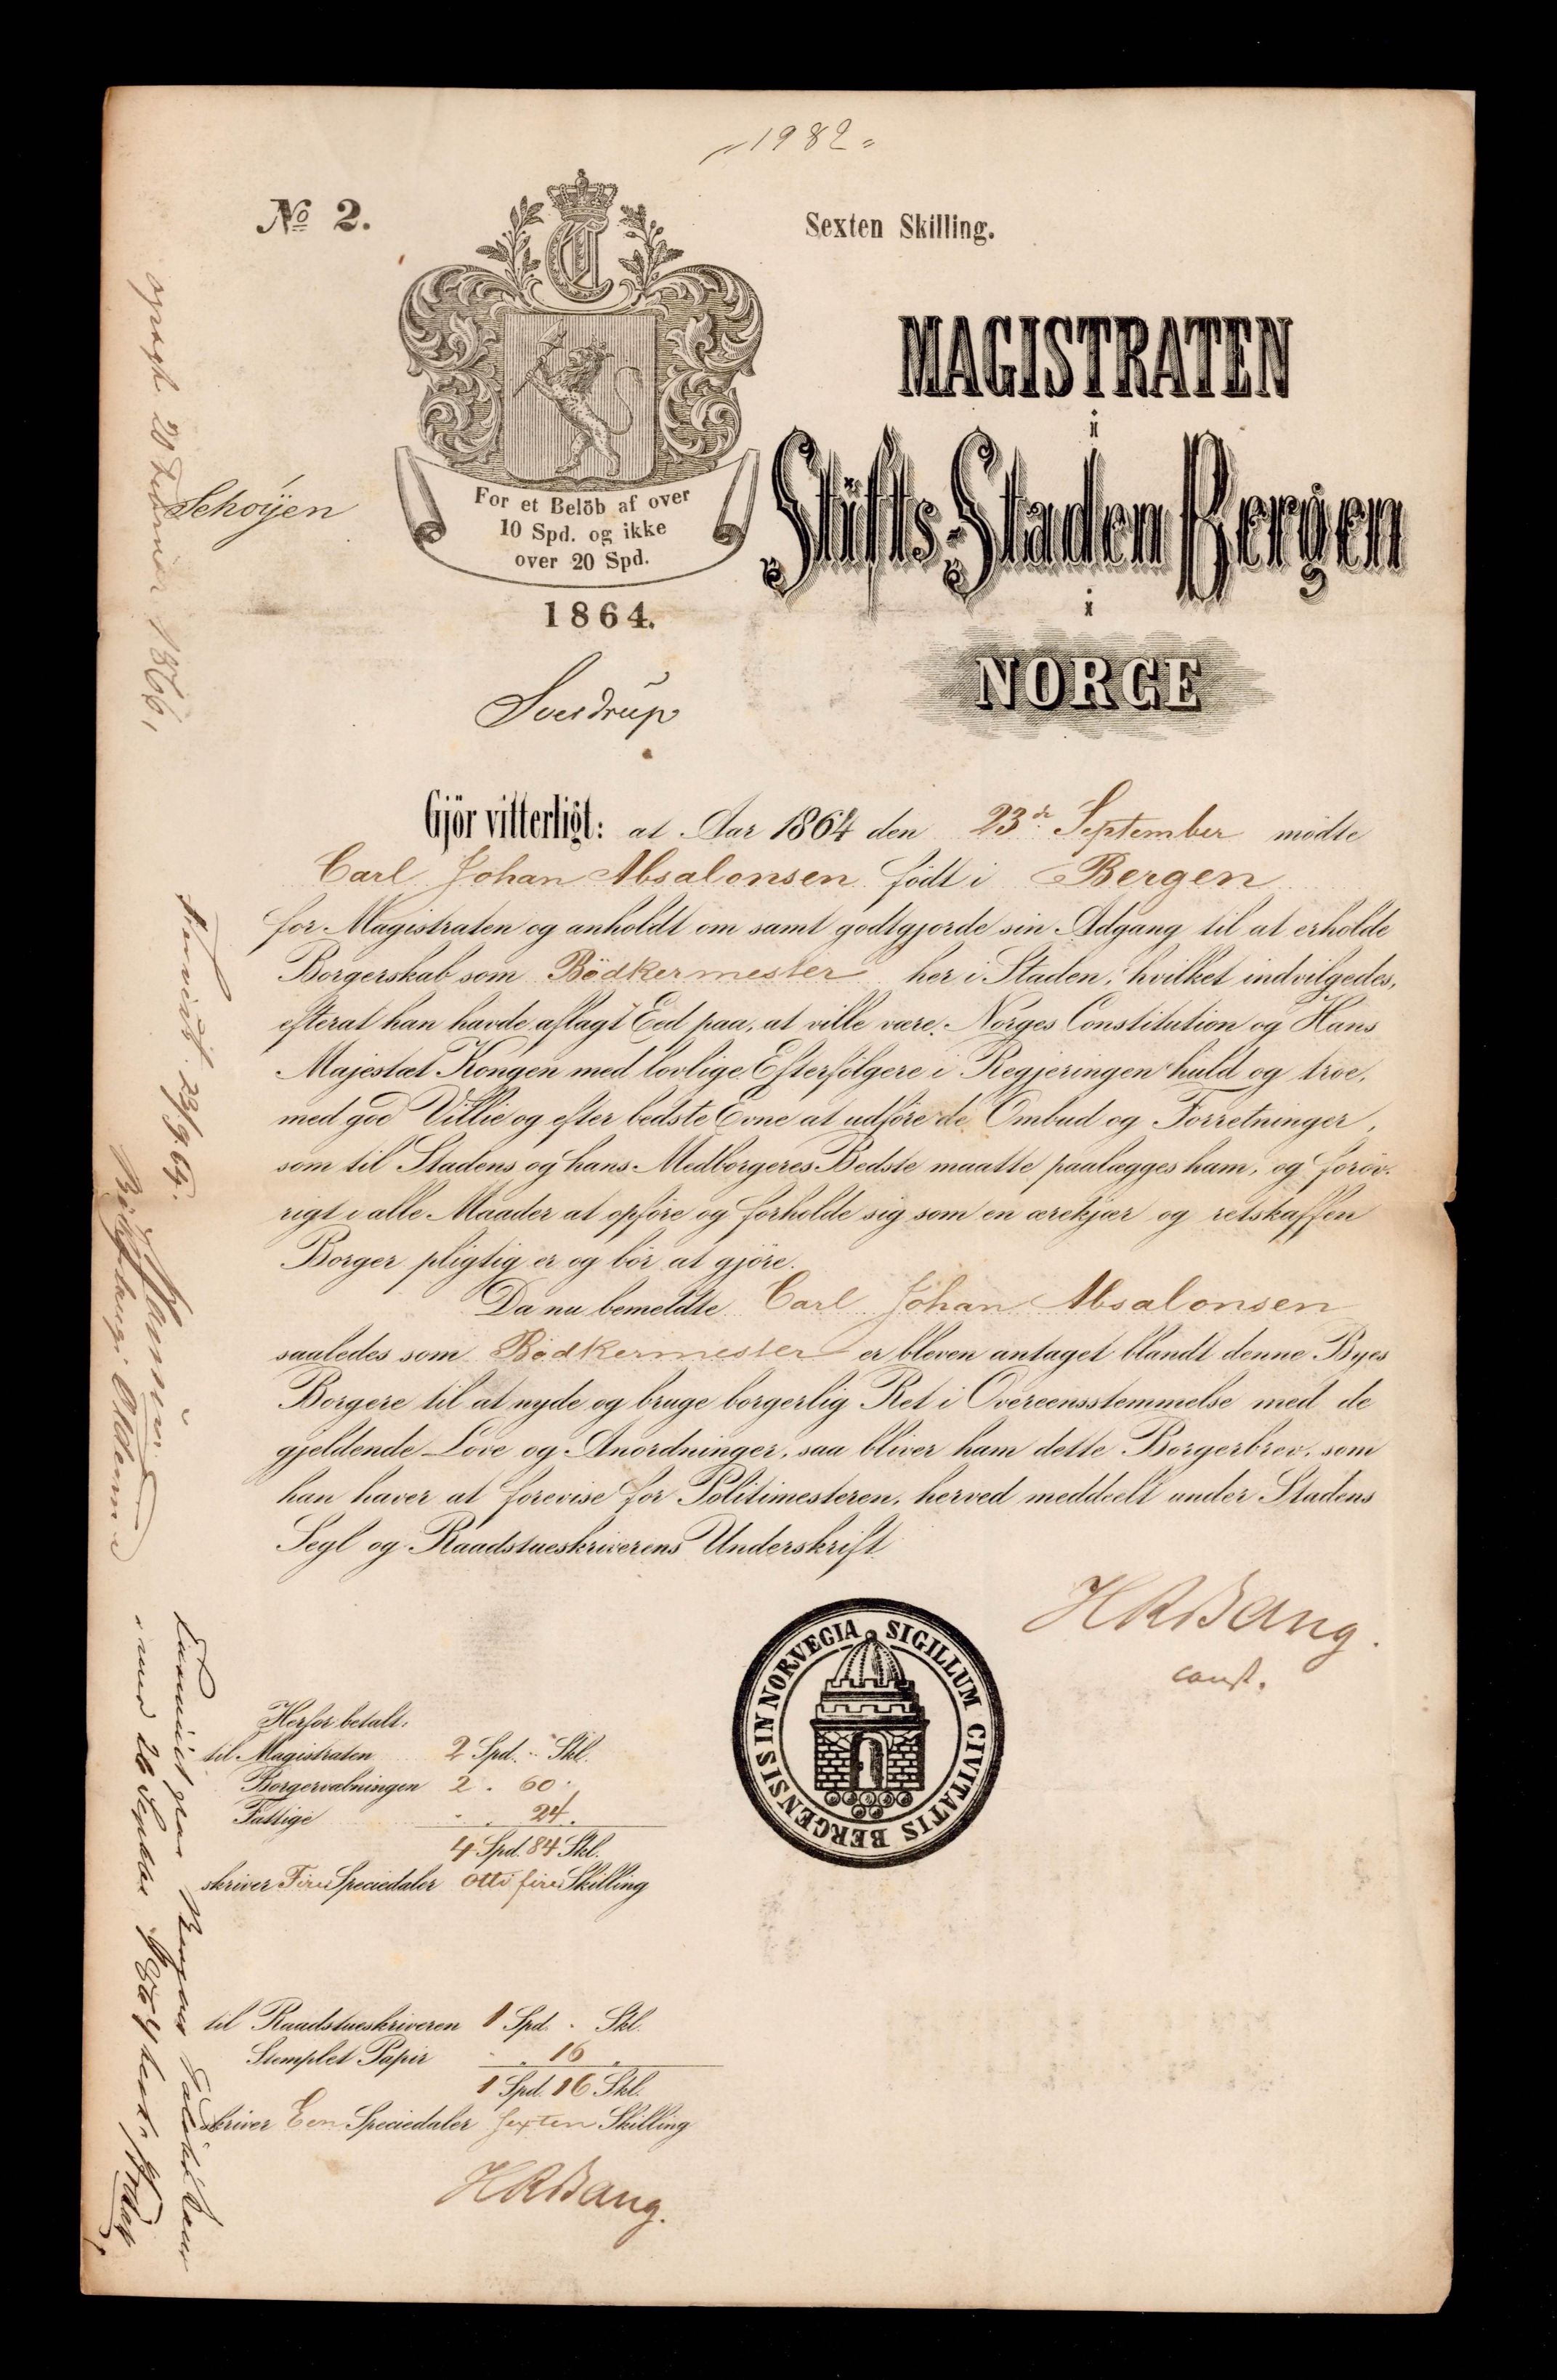 "1982"
No 2.
Sexten Skilling.
C
For et Belöb af over
10 Spd. og ikke
over 20 Spd.
1864.
MAGISTRATEN
i
Stifts-Staden Bergen
i
NORGE
Schøyen
Sverdrup
Gjör vitterligt: at Aar 1864 den 23de September mödte
Carl Johan Absalonsen födt i Bergen
for Magistraten og anholdt om samt godtgjorde sin Adgang til at erholde
Borgerskab som Bødkermester her i Staden, hvilket indvilgedes,
efterat han havde aflagt Eed paa, at ville være Norges Constitution og Hans
Majestæt Kongen med lovlige Efterfölgere i Regjeringen huld og troe,
med god Villie og efter bedste Evne at udföre de Ombud og Forretninger,
som til Stadens og hans Medborgeres Bedste maatte paalægges ham, og foröv-
rigt i alle Maader at opföre og forholde sig som en ærekjær og retskaffen
Borger pligtig er og bör at gjöre.
Da nu bemeldte Carl Johan Absalonsen
saaledes som Bødkermester er bleven antaget blandt denne Byes
Borgere til at nyde og bruge borgerlig Ret i Overeensstemmelse med de
gjeldende Love og Anordninger, saa bliver ham dette Borgerbrev, som
han haver at forevise for Politimesteren, herved meddeelt under Stadens
Segl og Raadstueskriverens Underskrift
HRBang.
const.
SIGILLUM CIVITATIS BERGENSIS IN NORVEGIA
Herfor betalt:
til Magistraten 2 Spd. " Skl.
Borgervæbningen 2 . 60 "
Fattige " . 24 .
4 Spd. 84 Skl.
skriver Fire Speciedaler otti fire Skilling
til Raadstueskriveren 1 Spd. " Skl.
Stemplet Papir " . 16 "
1 Spd. 16 Skl.
skriver Een Speciedaler sexten Skilling
HRBang.
opsagt 20 1866,
23/9 64.